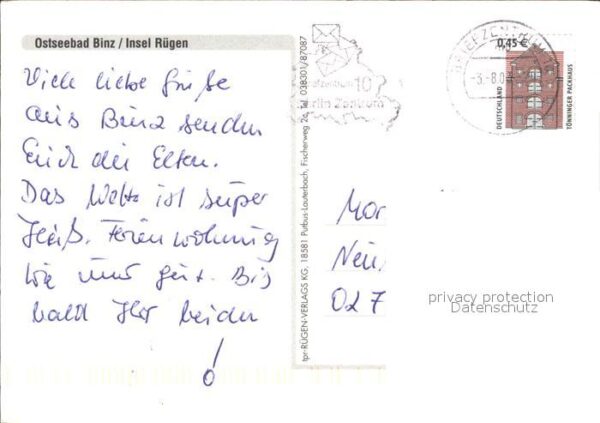 Ostseebad Binz / Insel Rügen
Viele liebe Grüße
aus Binz senden
Euch die Eltern.
Das Wetter ist super
Heiß. Ferienwohnung
wie immer gut. Bis
bald Ihr beiden
!
tpr-RÜGEN-VERLAGS KG, 18581 Putbus-Lauterbach, Fischerweg 2c, Tel. 038301/87087
Briefzentrum 10
Berlin Zentrum
BRIEFZENTRUM
-3.-8.0
0,45 €
DEUTSCHLAND
TÖNNINGER PACKHAUS
Mor
Neu
027
privacy protection
Datenschutz